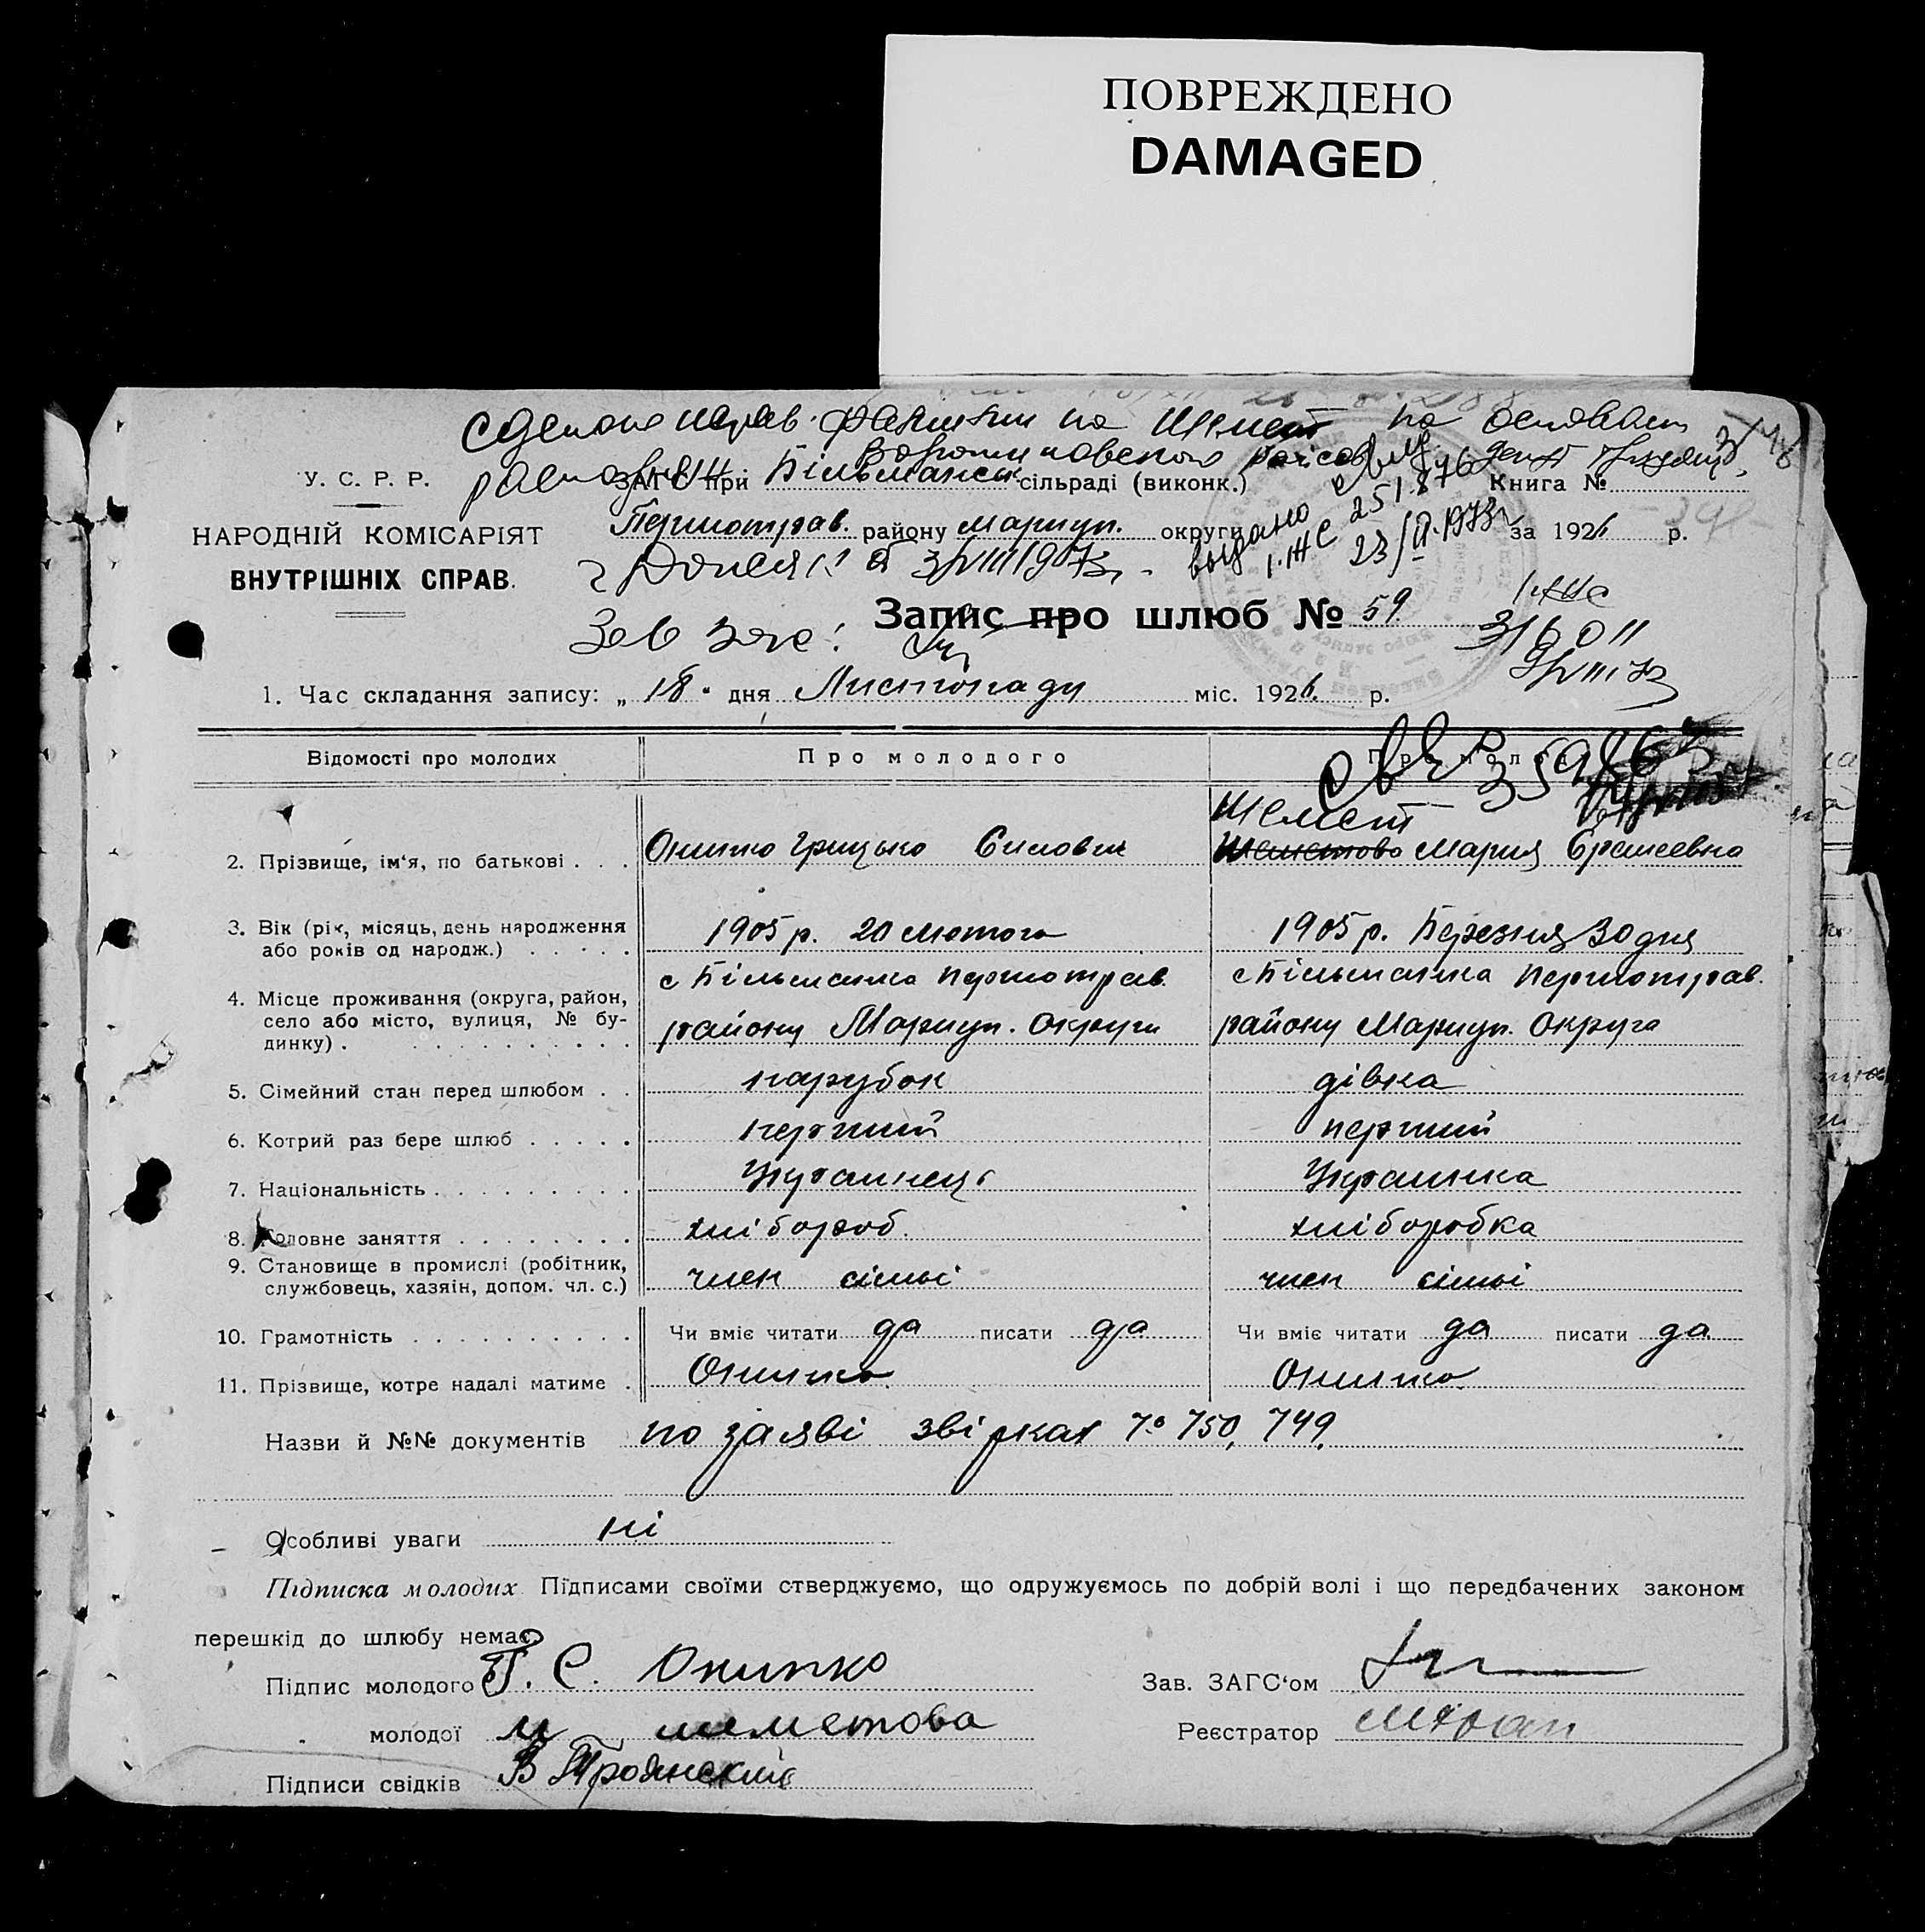 ПОВРЕЖДЕНО
DAMAGED
на Шемет на
У. С. Р. Р. ЗАГС при Більманськ. сільраді (виконк.) Книга №
НАРОДНІЙ КОМІСАРІЯТ Першотрав. району Маріуп. округи за 1926 р.
ВНУТРІШНІХ СПРАВ.
выдано
I. ЖС 251876
23/VI.1973г
Запис про шлюб № 59.
Зав загс:
316011
1. Час складання запису: „ 18 " дня Листопаду міс. 1926. р.
Відомості про молодих Про молодого
Шемет
2. Прізвище, ім'я, по батькові . . . Онипко Грицько Силович Шеметова Мария Єремеевна
3. Вік (рік, місяць, день народження
або років од народж.) . . . . 1905 р. 20 лютого 1905 р. Березня 30 дня
4. Місце проживання (округа, район, с Більманка Першотрав. с Більманка Першотрав.
село або місто, вулиця, № бу- району Маріуп. Округи району Маріуп. Округа
динку) . . . . . . . . . . .
5. Сімейний стан перед шлюбом . . парубок дівка
6. Котрий раз бере шлюб . . . . . перший перший
7. Національність . . . . . . . . . Українець Українка
8. Головне заняття . . . . . . . . хлібороб. хліборобка
9. Становище в промислі (робітник,
службовець, хазяін, допом. чл. с.) член сімьі член сімьі
10. Грамотність . . . . . . . . . . Чи вміє читати да писати да Чи вміє читати да писати да
11. Прізвище, котре надалі матиме . Онипко Онипко
Назви й №№ документів по заяві звірках 750, 749.
Особливі уваги ні
Підписка молодих Підписами своїми стверджуємо, що одружуємось по добрій волі і що передбачених законом
перешкід до шлюбу немає.
Підпис молодого Г. С. Онипко Зав. ЗАГС'ом
молодої м шеметова Реєстратор
Підписи свідків В Троянский